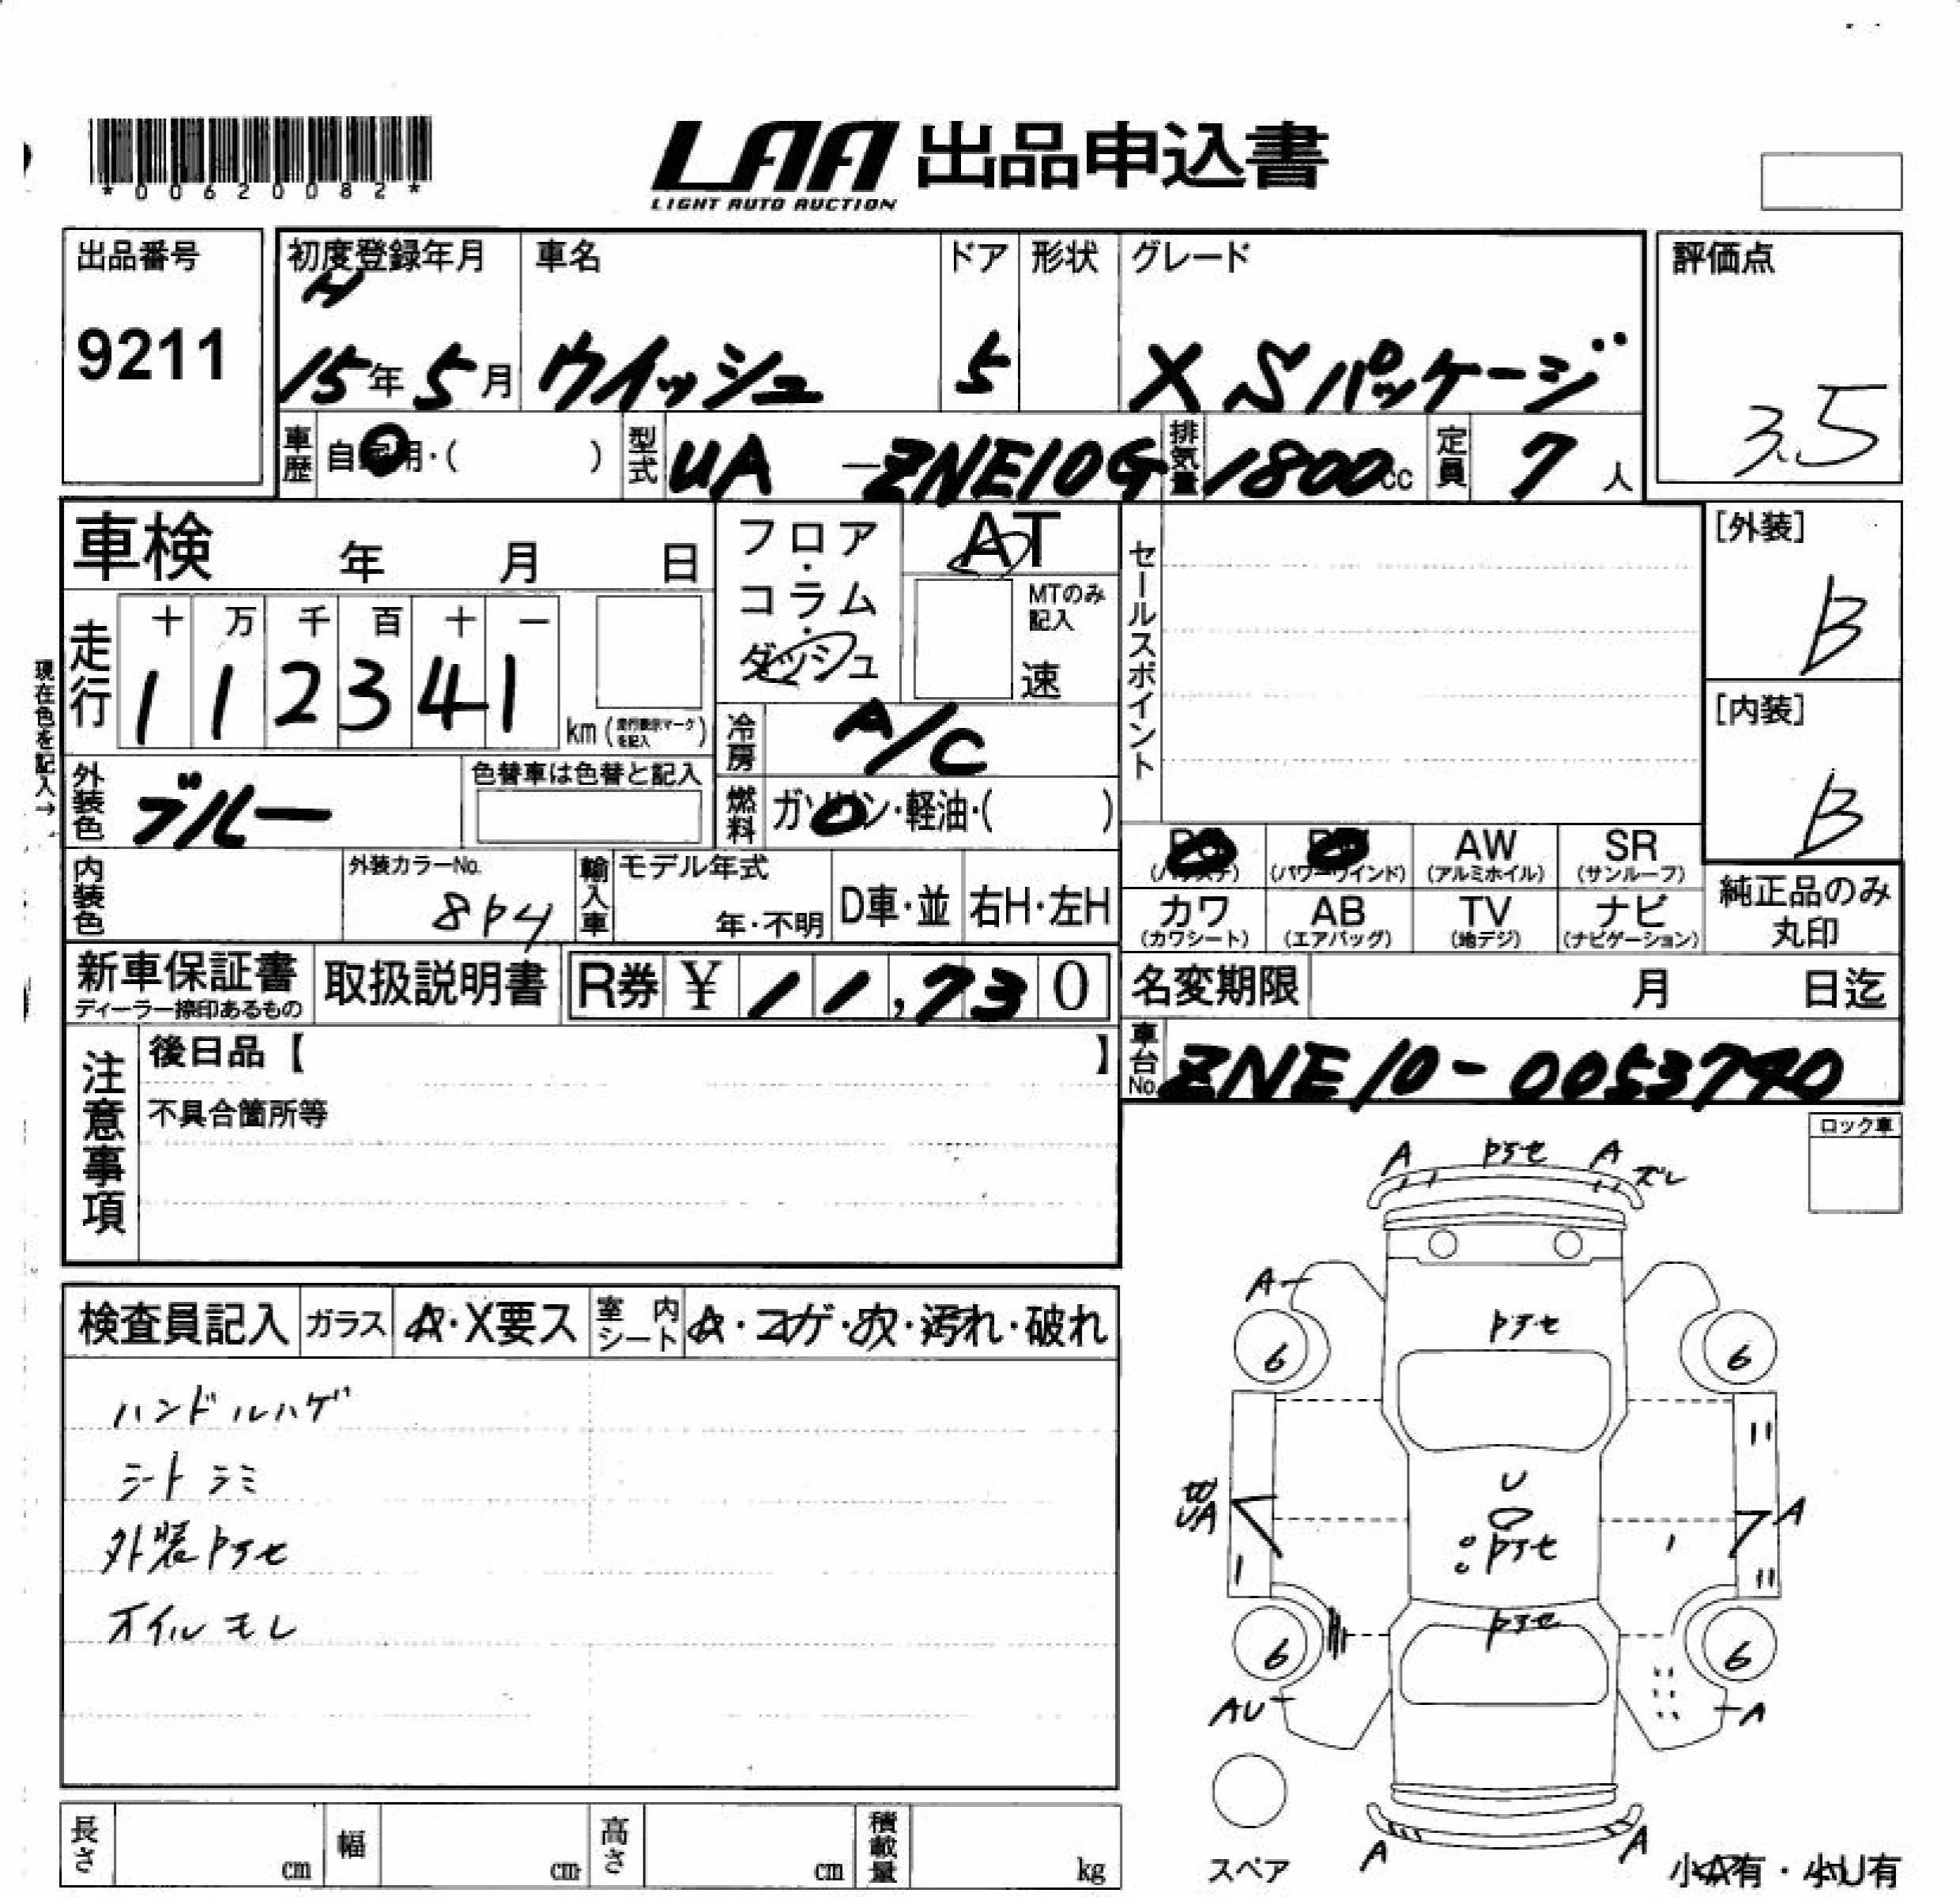 *00620082*
LAA 出品申込書
LIGHT AUTO AUCTION
出品番号 初度登録年月 車名 ドア 形状 グレード 評価点
9211 H 15年 5月 ウイッシュ 5 X Sパッケージ 3.5
車歴 自家用・( ) 型式 UA -ZNE10G 排気量 1800cc 定員 7人
車検 年 月 日 フロア・コラム・ダッシュ AT セールスポイント [外装] B
MTのみ記入 速
現在色を記入→
走行 十 万 千 百 十 一
1 1 2 3 4 1 km (走行表示マークを記入)
冷房 A/C [内装] B
外装色 ブルー 色替車は色替と記入 燃料 ガソリン・軽油・( )
PS (パワステ) PW (パワーウインド) AW (アルミホイル) SR (サンルーフ)
カワ (カワシート) AB (エアバッグ) TV (地デジ) ナビ (ナビゲーション) 純正品のみ丸印
内装色 外装カラーNo. 8P4 輸入車 モデル年式 年・不明 D車・並 右H・左H
新車保証書 ディーラー捺印あるもの 取扱説明書 R券 ¥ 11,730 名変期限 月 日迄
車台No. ZNE10-0053740
注意事項 後日品【 】
不具合箇所等
ロック車
検査員記入 ガラス A・X要ス 室内シート A・コゲ・穴・汚れ・破れ
ハンドルハゲ
シートシミ
外装色アセ
オイルモレ
A 色アセ A ズレ
A
色アセ
6 6
U
UA A
色アセ
色アセ
6 6
AU A
スペア A A 小A有・小U有
長さ cm 幅 cm 高さ cm 積載量 kg